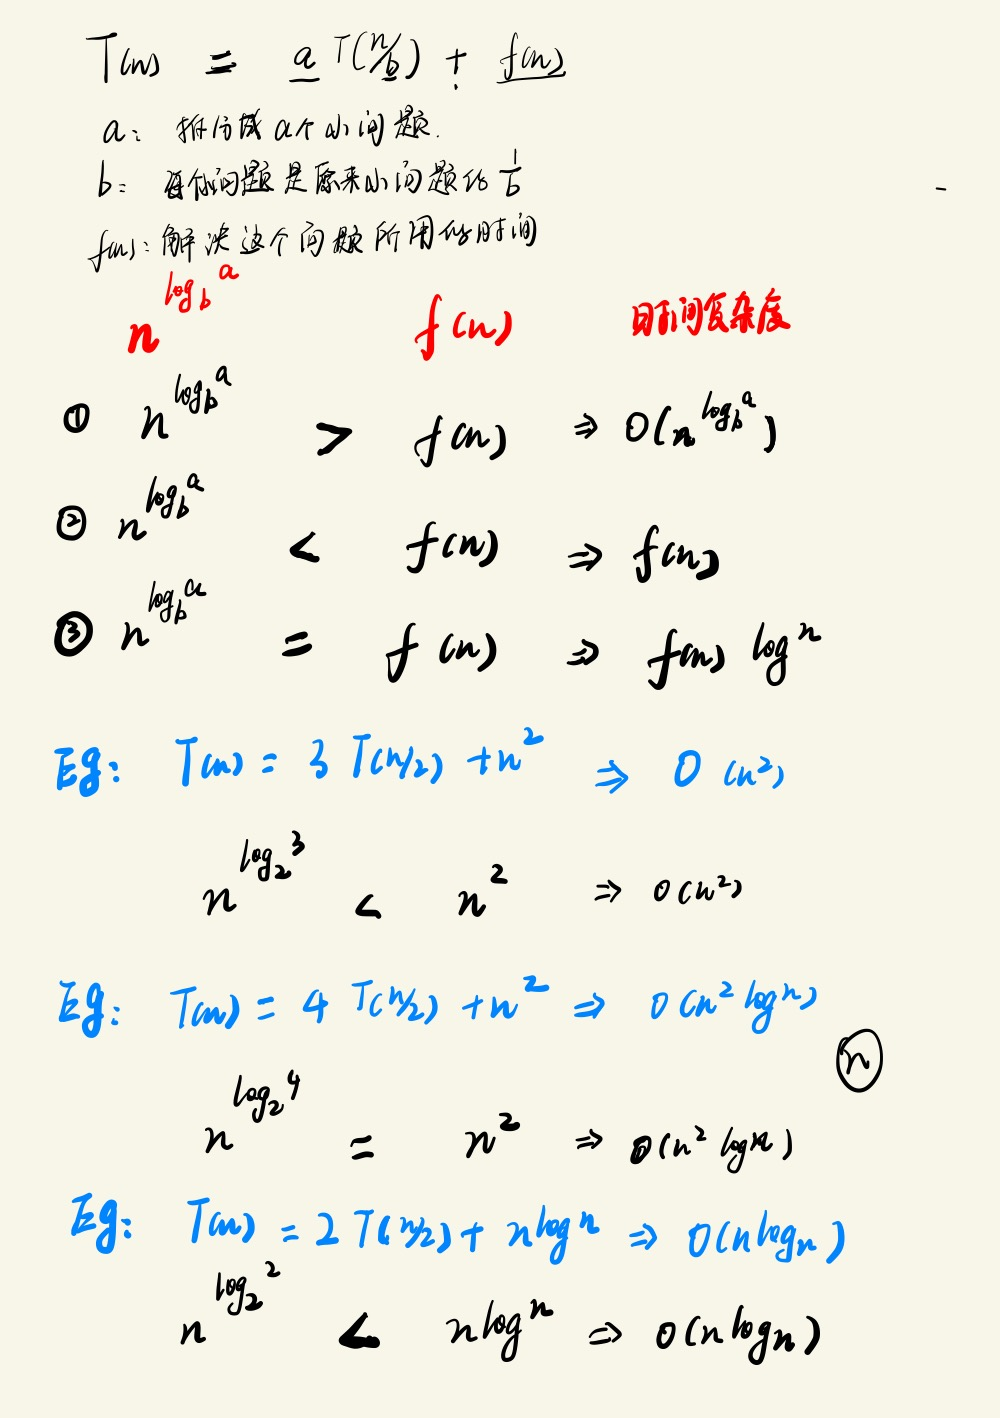 T(n) = a T(n/b) + f(n)
a: 拆分成 a个小问题.
b: 每个问题是原来小问题的 1/b
f(n): 解决这个问题所用的时间
n^{log_b a} f(n) 时间复杂度
① n^{log_b a} > f(n) ⇒ O(n^{log_b a})
② n^{log_b a} < f(n) ⇒ f(n)
③ n^{log_b a} = f(n) ⇒ f(n) log^n
Eg: T(n) = 3 T(n/2) + n^2 ⇒ O(n^2)
n^{log_2 3} < n^2 ⇒ O(n^2)
Eg: T(n) = 4 T(n/2) + n^2 ⇒ O(n^2 log^n)
n
n^{log_2 4} = n^2 ⇒ O(n^2 log^n)
Eg: T(n) = 2 T(n/2) + n log^n ⇒ O(n log n)
n^{log_2 2} < n log^n ⇒ O(n log n)